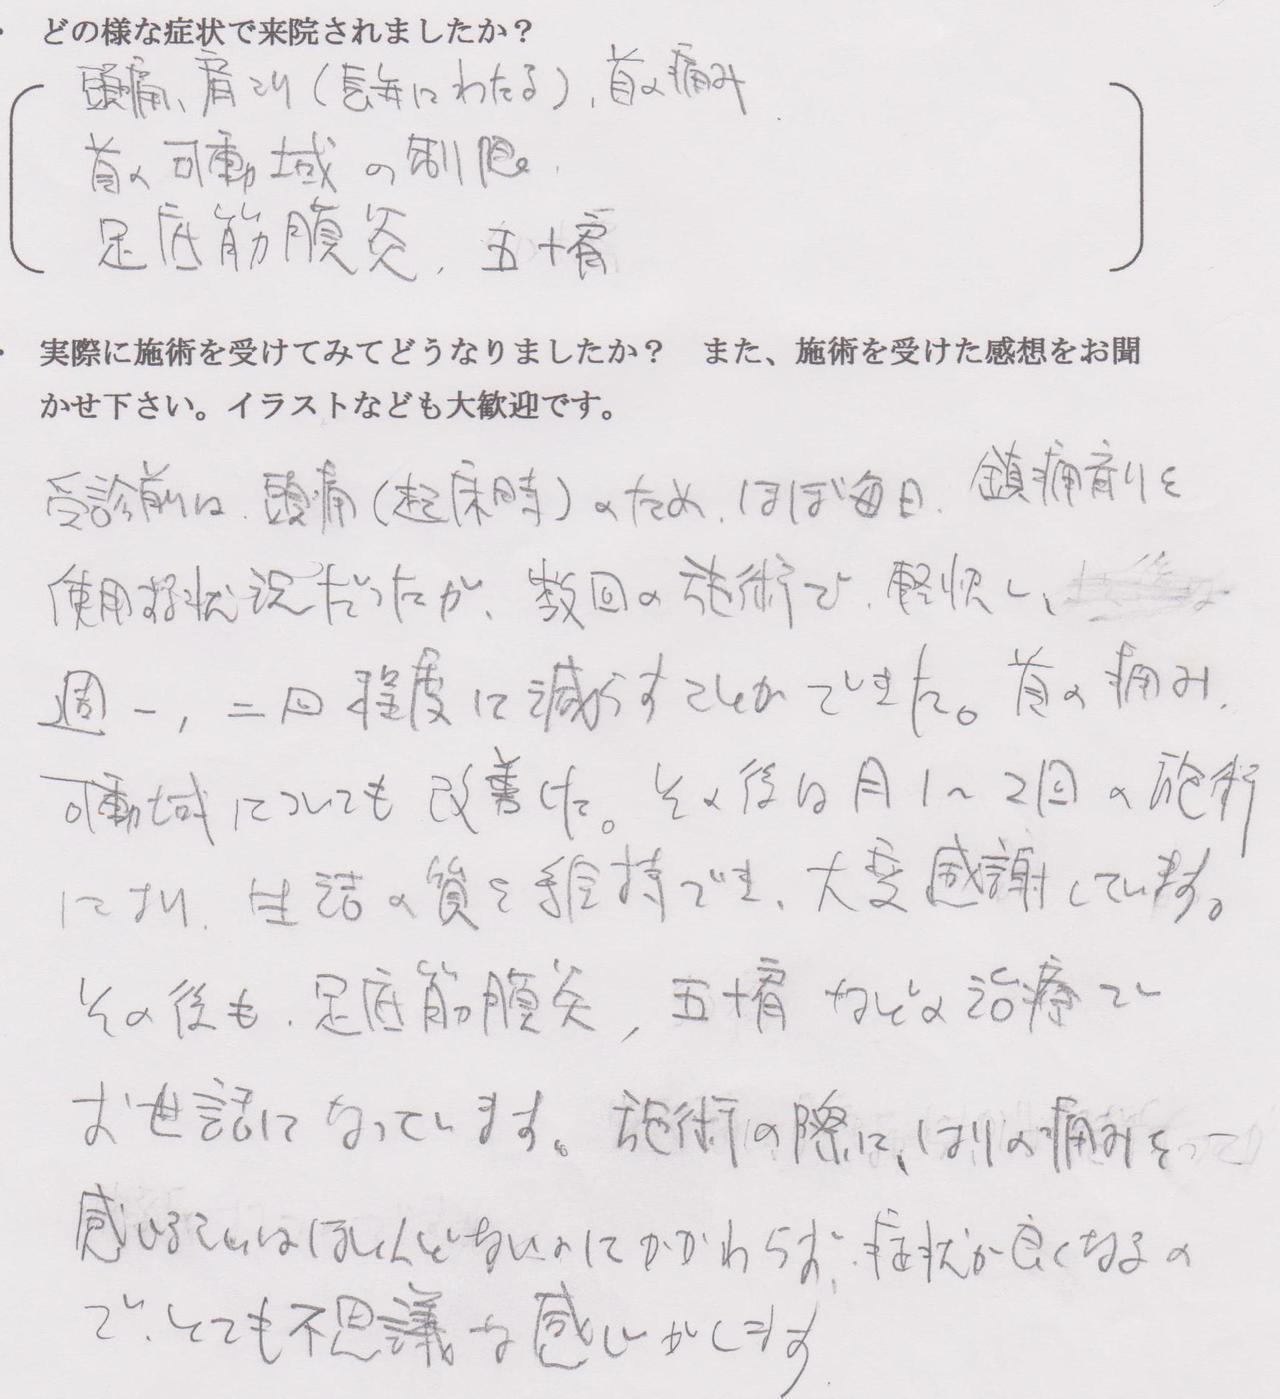 ・ どの様な症状で来院されましたか？
頭痛、肩こり（長年にわたる）、首の痛み
首の可動域の制限、
足底筋腹炎、五十肩
・ 実際に施術を受けてみてどうなりましたか？　また、施術を受けた感想をお聞
かせ下さい。イラストなども大歓迎です。
受診前は、頭痛（起床時）のため、ほぼ毎日、鎮痛剤を
使用する状況だったが、数回の施術で、軽快し、
週一，二回程度に減らすことができました。首の痛み、
可動域についても改善した。その後は月1～2回の施術
により、生活の質を維持でき、大変感謝しています。
その後も、足底筋腹炎，五十肩などの治療で
お世話になっています。施術の際に、はりの痛みを
感じることはほとんどないのにかかわらず、症状が良くなるの
で、とても不思議な感じがします